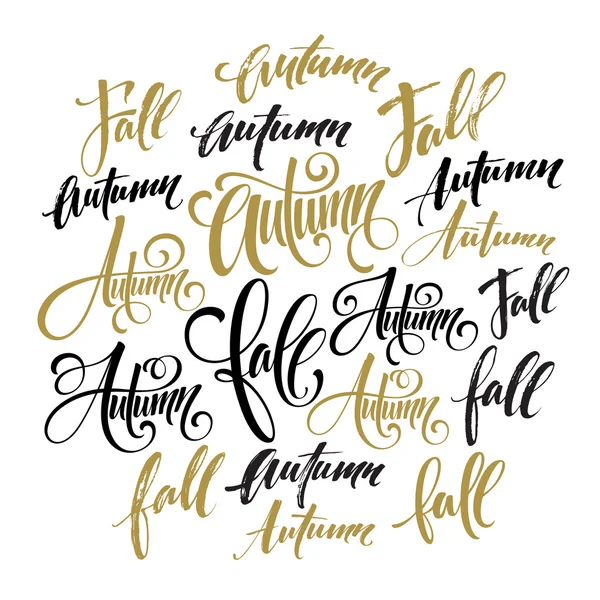 Autumn
Fall
Autumn
Fall
Autumn
Autumn
Autumn
Autumn
Autumn
Fall
fall
Autumn
Autumn
Autumn
fall
fall
Autumn
fall
Autumn